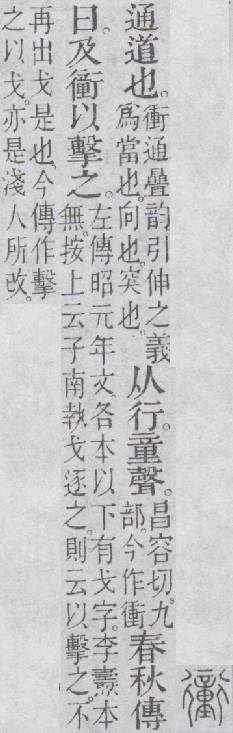 通道也。衝通疊韵引伸之義爲當也。向也。突也。从行。童聲。昌容切。九部。今作衝。春秋傳
曰。及衝以擊之。左傳昭元年文各本以下有戈字。李燾本無。按上云子南執戈逐之。則云以擊之。不
再出戈是也。今傳作擊之以戈。亦是淺人所改。